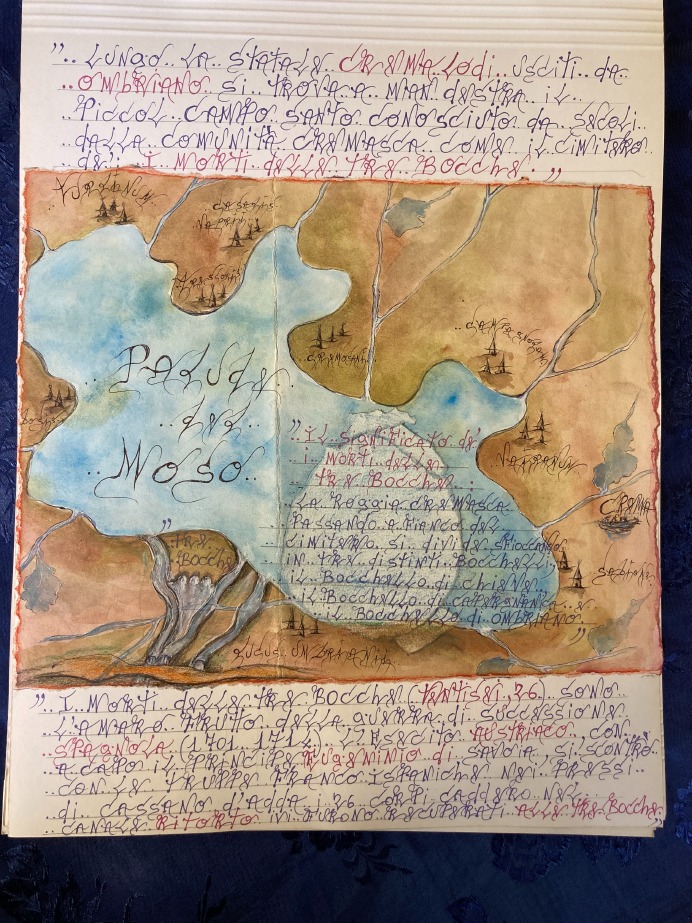 ”.. LUNGO.. LA.. STATALE.. CREMA. LODI.. USCITI.. DA..
.. OMBRIANO.. SI.. TROVA.. A.. MAN DESTRA.. IL..
.. PICCOL.. CAMPO.. SANTO. CONOSCIUTO.. DA.. SECOLI..
.. DALLA.. COMUNITÀ.. CREMASCA.. COME.. IL. CIMITERO
.. DEI.. I.. MORTI.. DELLE.. TRE.. BOCCHE.. ”
.. CREMOSANO
.. PALUDE..
.. DEL..
.. MOSO..
”.. IL.. SIGNIFICATO.. DE'
.. I.. MORTI.. DELLE..
.. TRE.. BOCCHE..
.. LA.. ROGGIA.. CREMASCA..
.. PASSANDO.. A. FIANCO.. DEL..
.. CIMITERO.. SI.. DIVIDE..
.. IN.. TRE.. DISTINTI.. BOCCHELLI..
.. IL.. BOCCHELLO.. DI.. CHIEVE..
.. IL.. BOCCHELLO.. DI.. CAPERGNANICA.. E
.. IL.. BOCCHELLO.. DI.. OMBRIANO.. ”
” TRE..
BOCCHE
CREMA
”.. I.. MORTI.. DELLE.. TRE.. BOCCHE.. (TRENTASEI. 36). SONO..
.. L'AMARO.. FRUTTO.. DELLA.. GUERRA.. DI.. SUCCESSIONE..
.. SPAGNOLA.. (1701.. 1714).. L'ESERCITO.. AUSTRIACO.. CON..
.. A CAPO.. IL.. PRINCIPE.. EUGENINIO.. DI.. SAVOIA.. SI.. SCONTRÒ..
.. CON.. LE.. TRUPPE.. FRANCO.. ISPANICHE.. NEI.. PRESSI..
.. DI.. CASSANO.. D'ADDA.. I.. 36.. CORPI.. CADDERO.. NEL..
.. CANALE.. RITORTO.. IVI.. FURONO.. RECUPERATI.. ALLE.. TRE.. BOCCHE.. ”